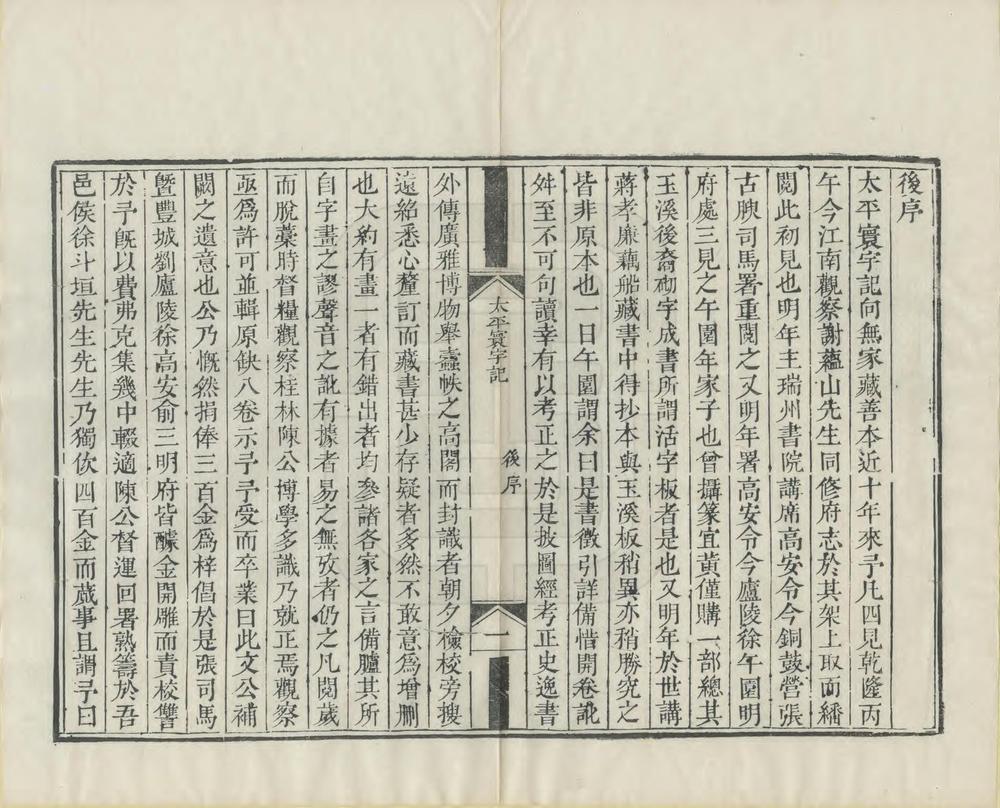 後序
太平寰宇記向無家藏善本近十年來予凡四見乾隆丙
午今江南觀察謝蘊山先生同修府志於其架上取而繙
閱此初見也明年主瑞州書院講席高安令今銅鼓營張
古腴司馬署重閱之又明年署高安令今廬陵徐午園明
府處三見之午園年家子也曾攝篆宜黃僅購一部總其
玉溪後裔砌字成書所謂活字板者是也又明年於世講
蔣孝廉藕船藏書中得抄本與玉溪板稍異亦稍勝究之
皆非原本也一日午園謂余曰是書徵引詳備惜開卷訛
舛至不可句讀幸有以考正之於是披圖經考正史逸書
太平寰宇記
後序
一
外傳廣雅博物舉蠹帙之高閣而封識者朝夕檢校旁搜
遠紹悉心釐訂而藏書甚少存疑者多然不敢意為增刪
也大約有畫一者有錯出者均參諸各家之言備臚其所
自字畫之謬聲音之訛有據者易之無攷者仍之凡閱歲
而脫藁時督糧觀察桂林陳公博學多識乃就正焉觀察
亟為許可並輯原缺八卷示予予受而卒業曰此文公補
闕之遺意也公乃慨然捐俸三百金為梓倡於是張司馬
暨豐城劉廬陵徐高安俞三明府皆醵金開雕而責校讐
於予旣以費弗克集幾中輟適陳公督運回署熟籌於吾
邑侯徐斗垣先生先生乃獨佽四百金而蕆事且謂予曰